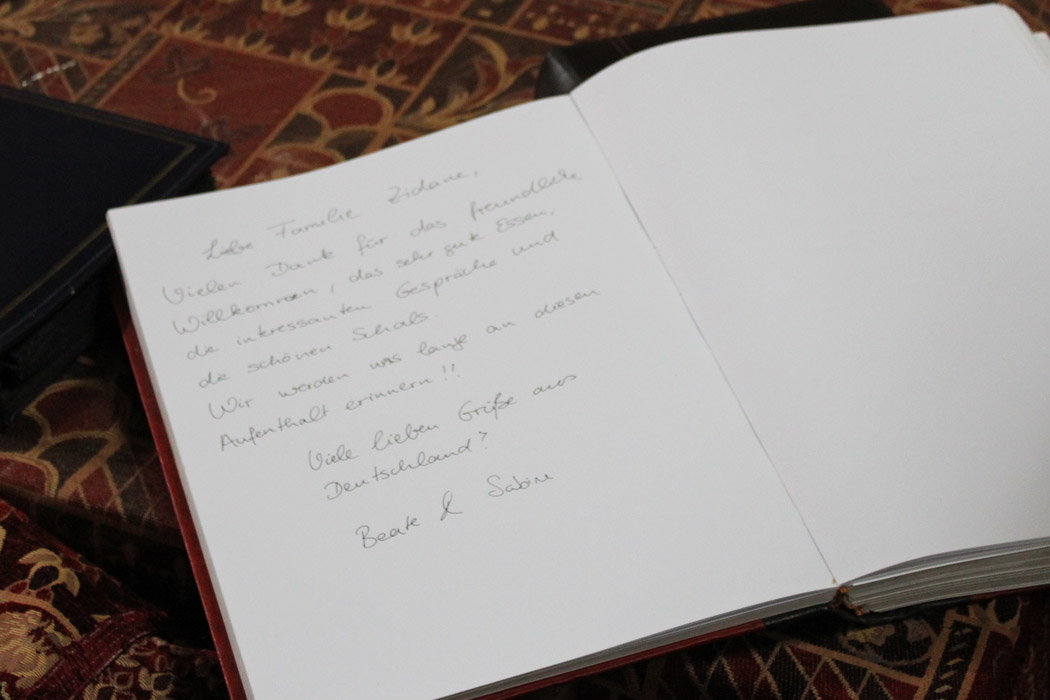 Liebe Familie Zidane,
Vielen Dank für das freundliche
Willkommen, das sehr gute Essen,
die interessanten Gespräche und
die schönen Schals.
Wir werden uns lange an diesen
Aufenthalt erinnern!!
Viele lieben Grüße aus
Deutschland?
Beate & Sabine